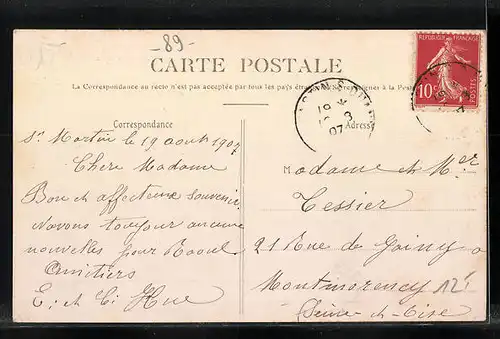 -89-
CARTE POSTALE
La Correspondance au recto n'est pas acceptée par tous les pays étrangers à la Poste
REPUBLIQUE FRANÇAISE
10c
POSTES
19
3
07
Correspondance
Adresse
St Martin le 19 aout 1907
Chere Madame
Bon et affectueux souvenir
Navons toujour aucune
nouvelles pour Raoul
Amitiers
E. et Hue
Madame et Mer
Tessier
21 Rue de
Montmorency
(Seine et Oise